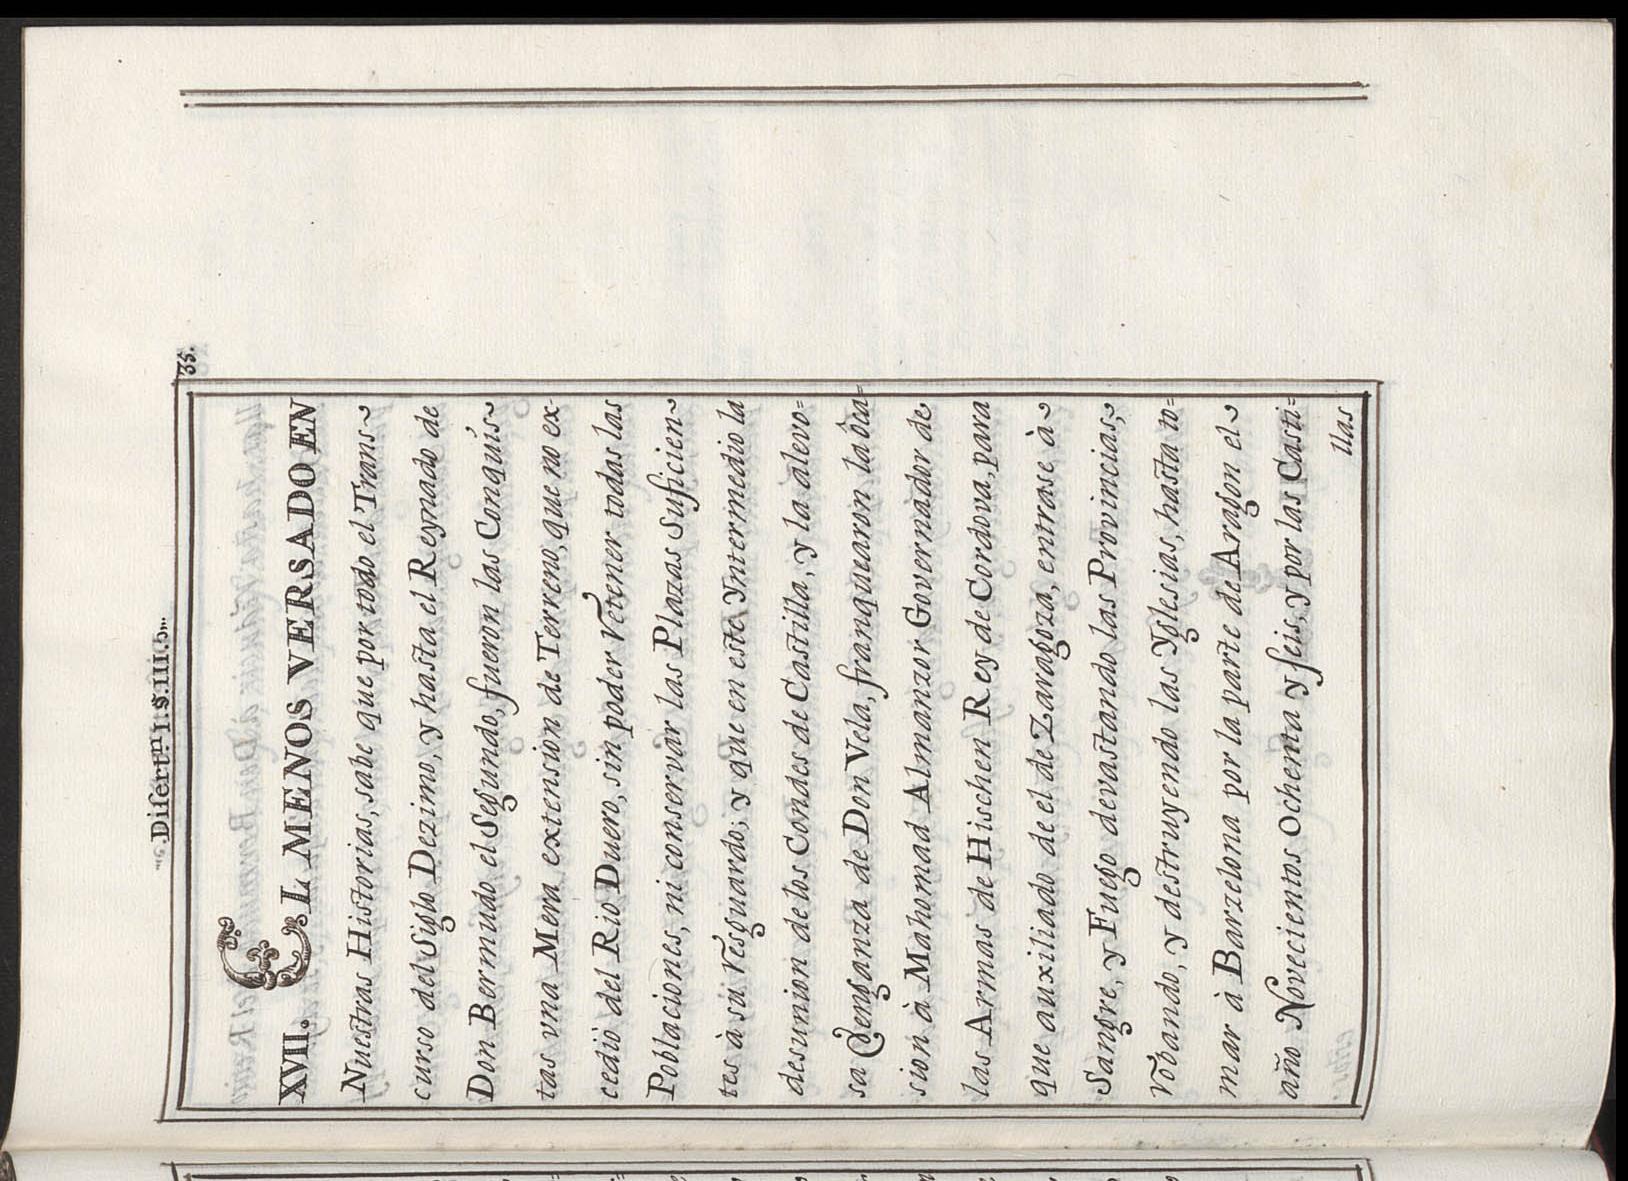 Disert.ⁿ I. §. III.
35.
XVII. EL MENOS VERSADO EN
Nuestras Historias, sabe que por todo el Trans~
curso del Siglo Dezimo, y hasta el Reynado de
Don Bermudo el Segundo, fueron las Conquis~
tas vna Mera extension de Terreno, que no ex-
cedió del Rio Duero, sin poder retener todas las
Poblaciones, ni conservar las Plazas Suficien~
tes à su resguardo; y que en este Yntermedio la
desunion de los Condes de Castilla, y la alevo=
sa Venganza de Don Vela, franquearon la òca=
sion à Mahomad Almanzor Governador de
las Armas de Hischen Rey de Cordova, para
que auxiliado de el de Zaragoza, entrase à~
Sangre, y Fuego devastando las Provincias,
robando, y destruyendo las Yglesias, hasta to=
mar à Barzelona por la parte de Aragon el~
año Novecientos Ochenta y seis, y por las Casti=
llas